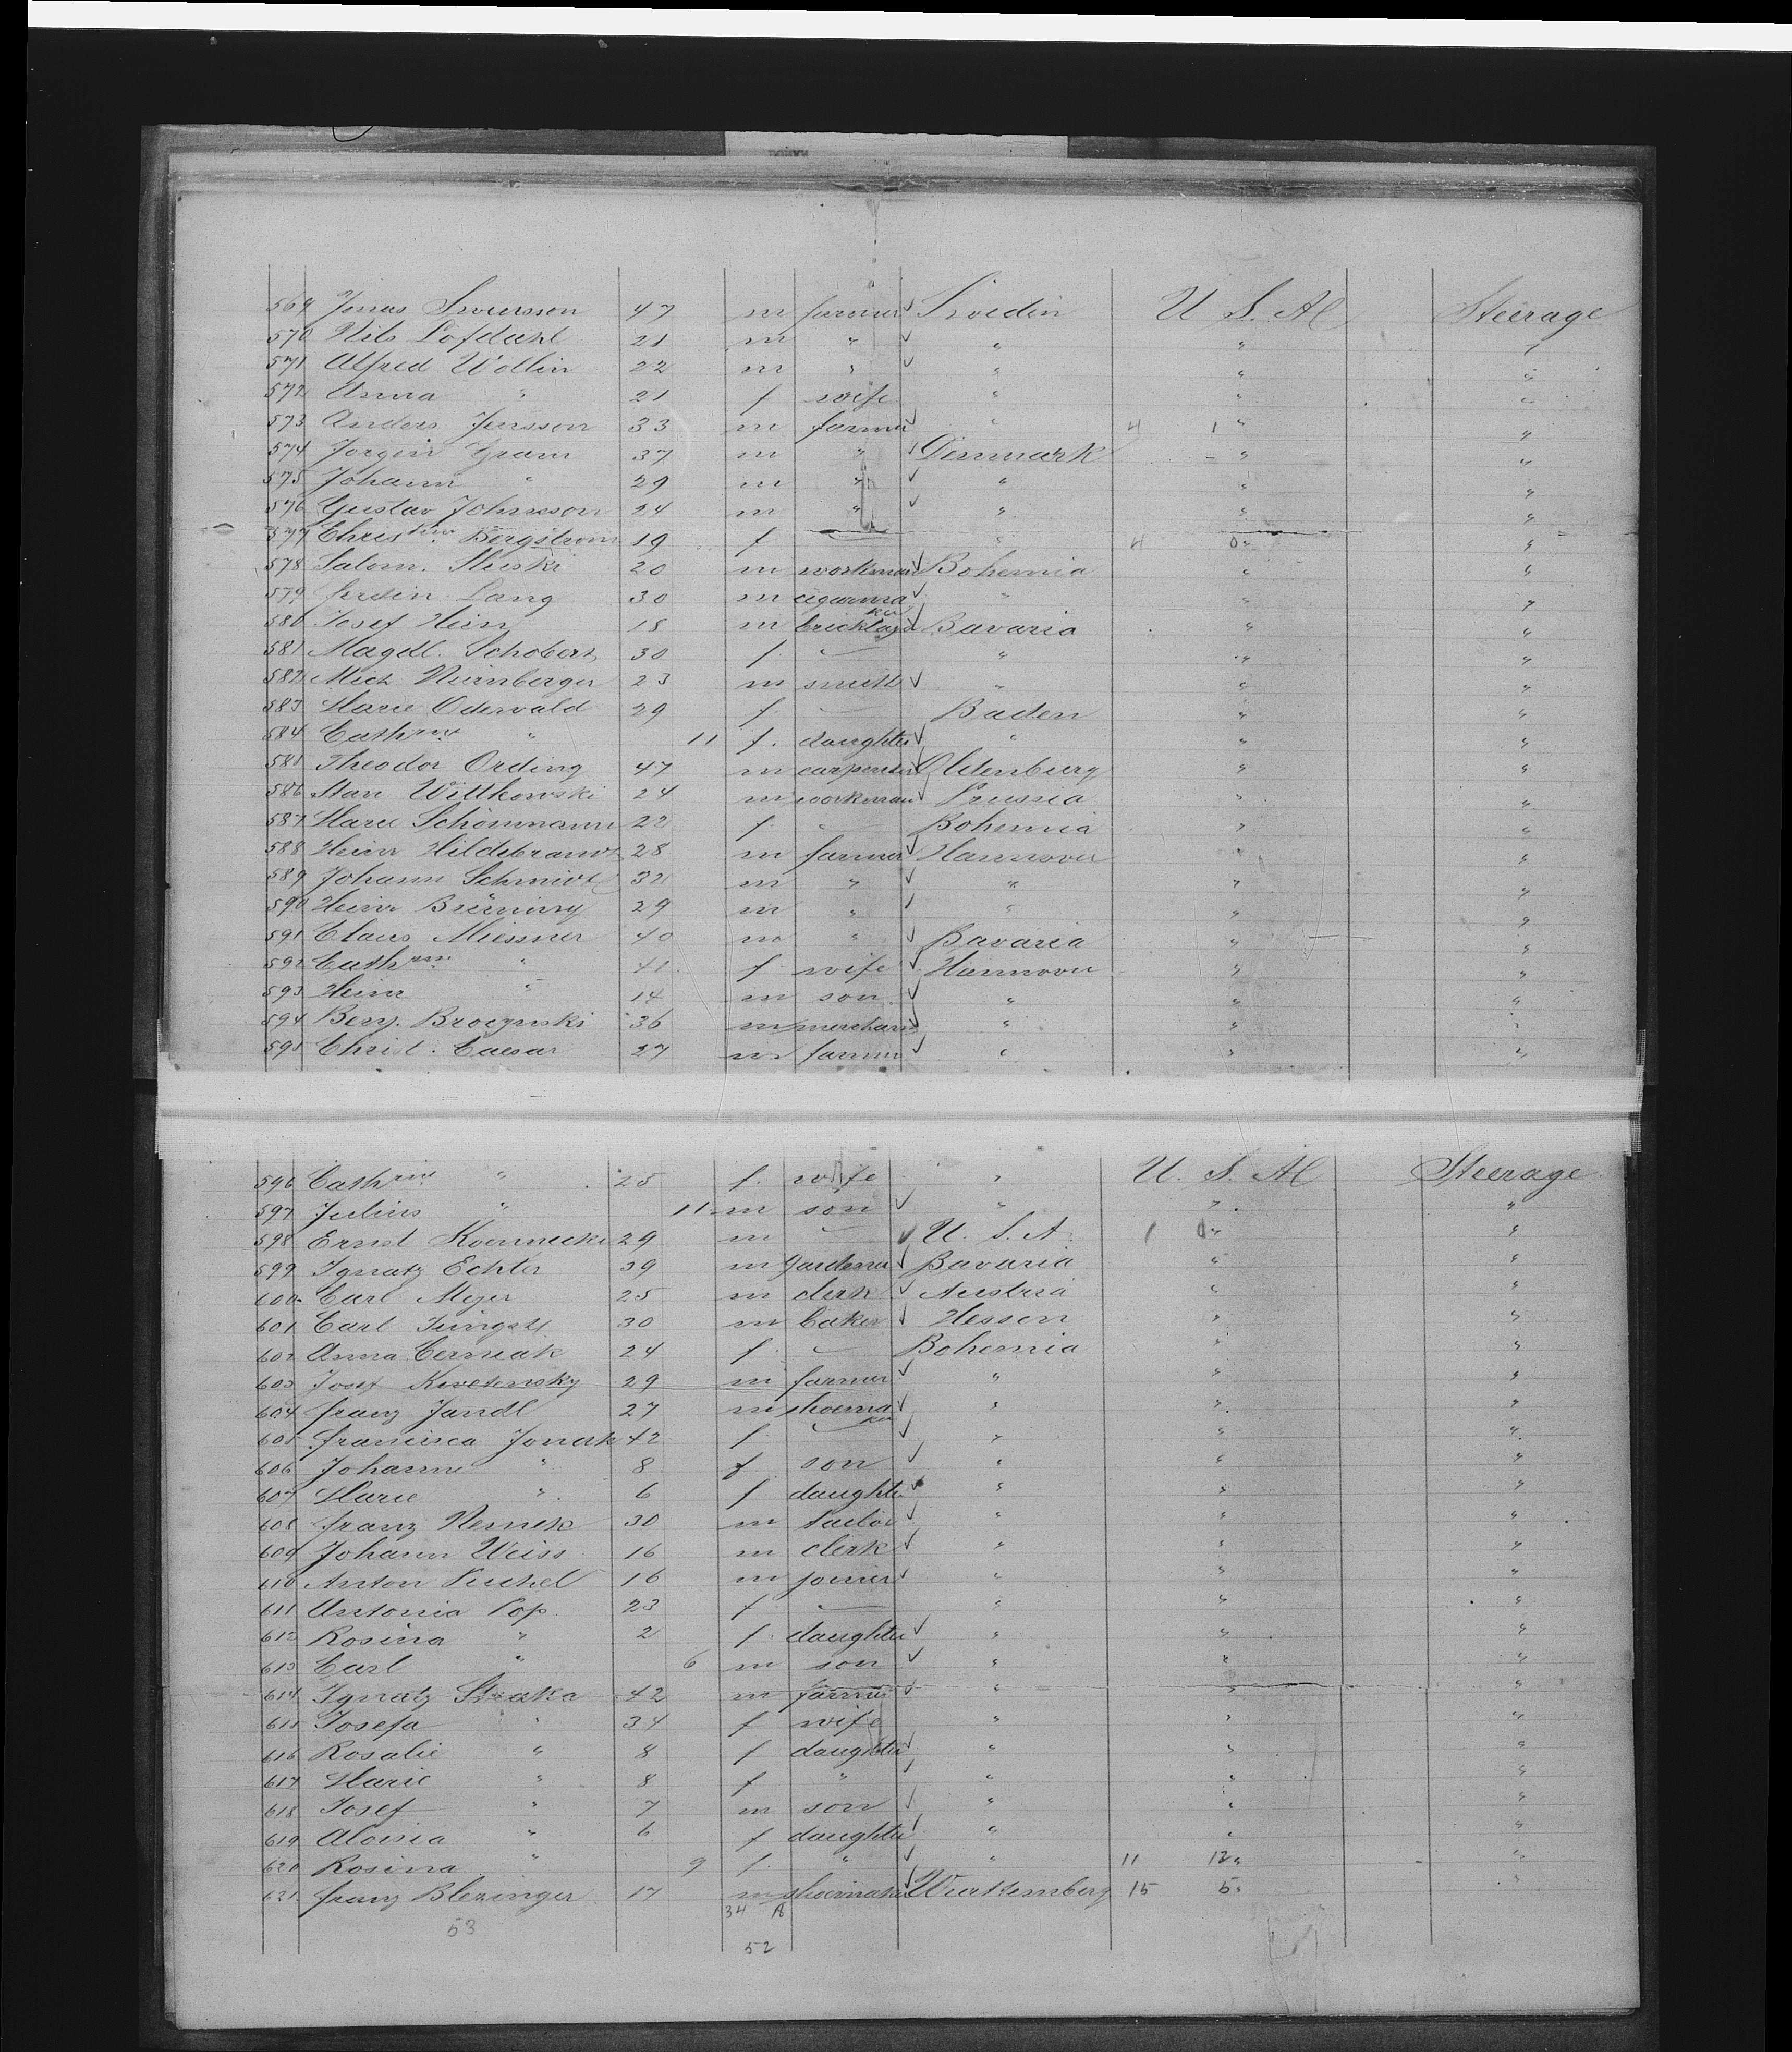 569 Jonas Svensson 47 m farmer ✓ Sweden U S. A Steerage
570 Nils Lofdahl 21 m " ✓ " " "
571 Alfred Wollin 22 m " ✓ " " "
572 Anna " 21 f wife " " "
573 Anders Jensson 33 m farmer ✓ " 4 1 " "
574 Jorgen Gram 37 m " ✓ Denmark - " "
575 Johann " 29 m " ✓ " " "
576 Gustav Johnsson 24 m " ✓ " " "
577 Christine Bergstrom 19 f — " 4 0 " "
578 Salom. 20 m workman ✓ Bohemia " "
579 Lang 30 m cigarmaker ✓ " " "
580 Josef Hein 18 m bricklayer ✓ Bavaria " "
581 Magdl. Schobert 30 f — " " "
582 Mich Nürnberger 23 m smith ✓ " " "
583 Marie Oderwald 29 f — Baden " "
584 Cathrine " 11 f. daughter ✓ " " "
585 Theodor Ording 47 m carpenter ✓ Oldenburg " "
586 Wittkowski 24 m workman ✓ Prussia " "
587 Marie Schönmann 22 f. — Bohemia " "
588 Heinr Hildebrandt 28 m farmer ✓ Hannover " "
589 Johann Schmidt 32 m " ✓ " " "
590 Heinr Brüning 29 m " ✓ " " "
591 Claus Miessner 40 m " ✓ Bavaria " "
592 Cathrine " 41 f wife ✓ Hannover " "
593 Heinr " 14 m son ✓ " " "
594 Benj. Broczynski 36 m merchant ✓ " " "
595 Christ. Caesar 27 m farmer ✓ " " "
596 Cathrine " 25 f. wife " U. S. A Steerage
597 Julius " 11 m son ✓ " " "
598 Ernst Koennecke 29 m — ✓ U. S. A. 1 0 " "
599 Ignatz Echter 39 m gardener ✓ Bavaria " "
600 Carl Meyer 25 m clerk ✓ Austria " "
601 Carl Jüngst 30 m baker ✓ Hessen " "
602 Anna Cermak 24 f. — Bohemia " "
603 Josef 29 m farmer ✓ " " "
604 franz Jandl 27 m shoemaker ✓ " " "
605 francisca Jonak 42 f. — ✓ " " "
606 Johann " 8 f son ✓ " " "
607 Marie " 6 f daughter ✓ " " "
608 franz Nemek 30 m tailor ✓ " " "
609 Johann Weiss 16 m clerk ✓ " " "
610 Anton 16 m joiner ✓ " " "
611 Antonia Pop 23 f. — " " "
612 Rosina " 2 f. daughter ✓ " " "
613 Carl " 6 m son ✓ " " "
614 Ignatz Straka 42 m farmer ✓ " " "
615 Josefa " 34 f wife " " "
616 Rosalie " 8 f daughter ✓ " " "
617 Marie " 8 f " ✓ " " "
618 Josef " 7 m son ✓ " " "
619 Aloisia " 6 f daughter ✓ " " "
620 Rosina " 9 f. " ✓ " 11 12 " "
621 franz Blezinger 17 m shoemaker ✓ Wurttemberg 15 5 " "
34 18
53
52